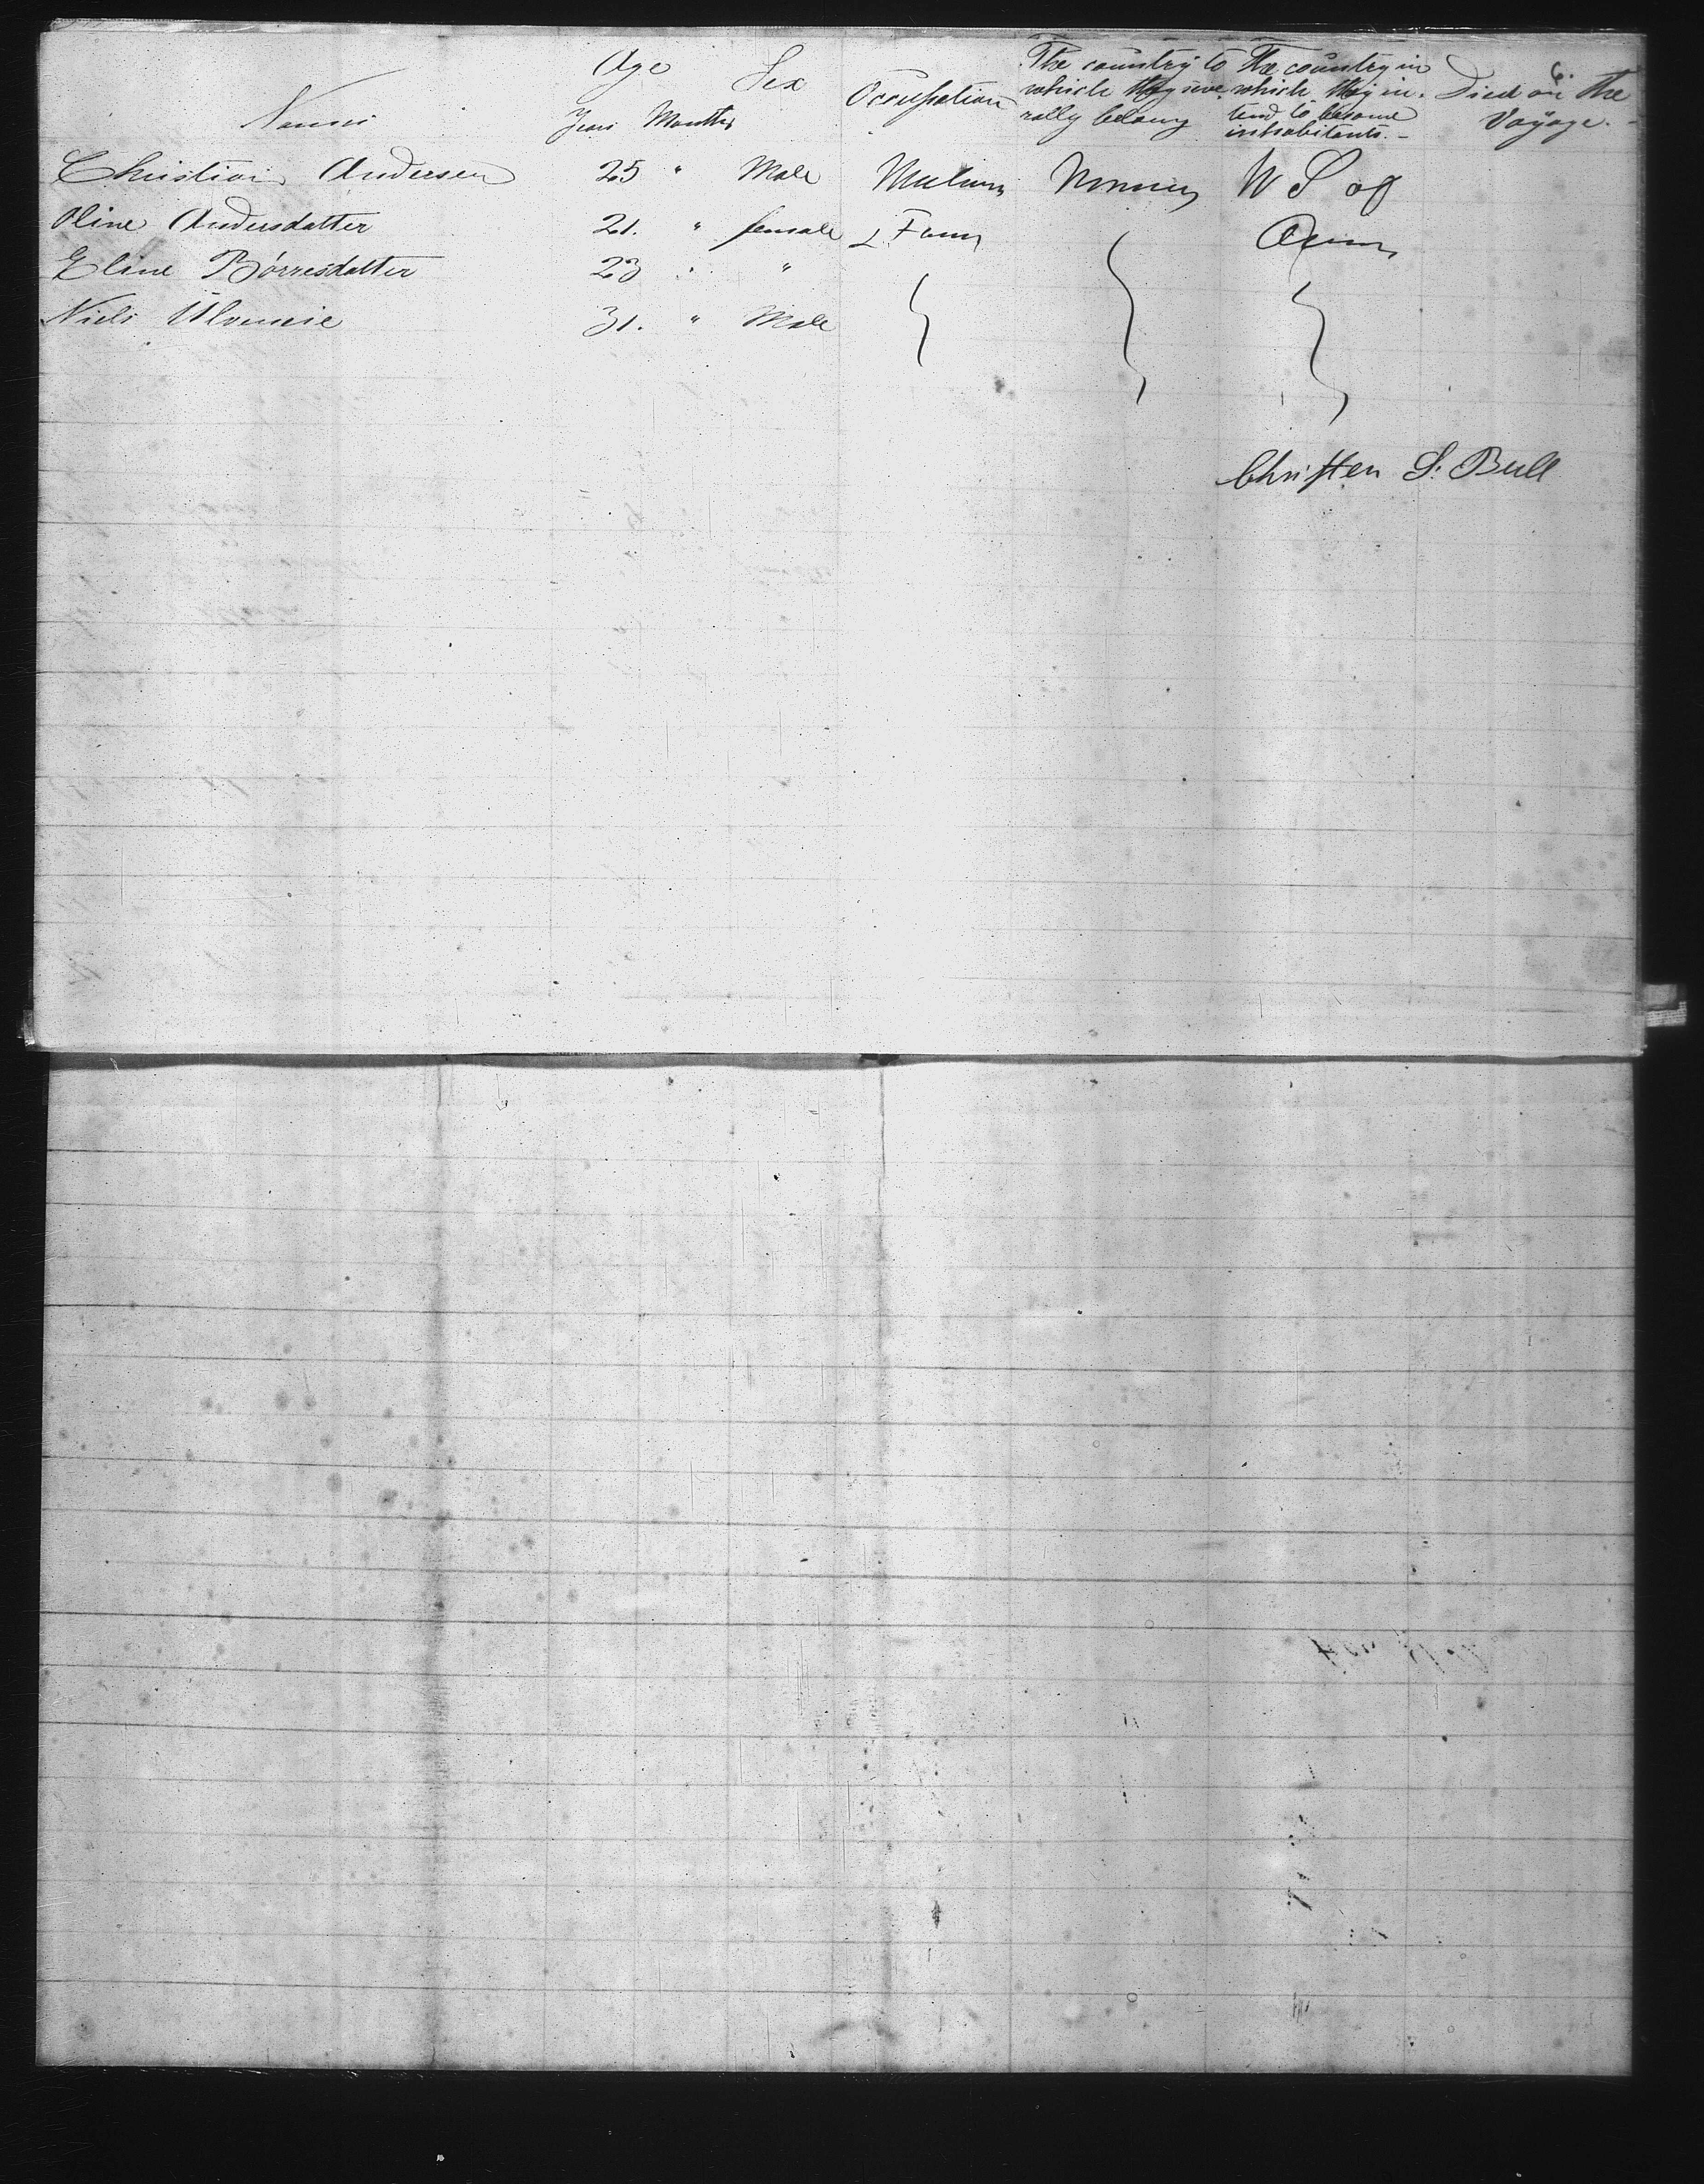 6.
Names Age Years Months Sex Occupation The country to which they severally belong The country in which they intend to become inhabitants.- Died on the Voyage.-
Christian Andersen 25 " Male Norway U S of
Oline Andersdatter 21. " female & Farm
Eline Börresdatter 23 " "
Niels 31. " Male
Christen S: Bull